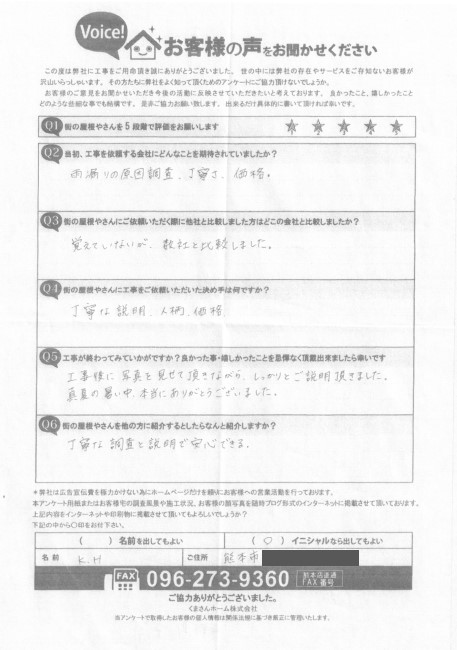 Voice!
お客様の声をお聞かせください
この度は弊社に工事をご用命頂き誠にありがとうございました。世の中には弊社の存在やサービスをご存知ないお客様が
沢山いらっしゃいます。その方たちに弊社をよく知って頂くためのアンケートにご協力頂けないでしょうか。
お客様のご意見をお聞かせいただき今後の活動に反映させていただきたいと考えております。良かったこと、嬉しかったこと
どのような些細な事でも結構です。是非ご協力お願い致します。出来るだけ具体的に書いて頂ければ幸いです。
Q1 街の屋根やさんを5段階で評価をお願いします
1 2 3 4 5
Q2 当初、工事を依頼する会社にどんなことを期待されていましたか?
雨漏りの原因調査、丁寧さ、価格。
Q3 街の屋根やさんにご依頼いただく際に他社と比較しました方はどこの会社と比較しましたか?
覚えていないが、数社と比較しました。
Q4 街の屋根やさんに工事をご依頼いただいた決め手は何ですか?
丁寧な説明、人柄、価格
Q5 工事が終わってみていかがですか?良かった事・嬉しかったことを忌憚なく頂戴出来ましたら幸いです
工事後に写真を見せて頂きながら、しっかりとご説明頂きました。
真夏の暑い中、本当にありがとうございました。
Q6 街の屋根やさんを他の方に紹介するとしたらなんと紹介しますか?
丁寧な調査と説明で安心できる。
*弊社は広告宣伝費を極力かけない為にホームページだけを頼りにお客様への営業活動を行っております。
本アンケート用紙またはお客様宅の調査風景や施工状況、お客様の顔写真を随時ブログ形式のインターネットに掲載させて頂いております。
上記内容をインターネットや印刷物に掲載させて頂いてもよろしいでしょうか?
下記の中から○印をお付下さい。
( )名前を出してもよい (○)イニシャルなら出してもよい
名前 K.H ご住所 熊本市
FAX 096-273-9360 熊本店直通 FAX番号
ご協力ありがとうございました。
くまさんホーム株式会社
※アンケートで取得したお客様の個人情報は関係法規に基づき厳正に管理いたします。